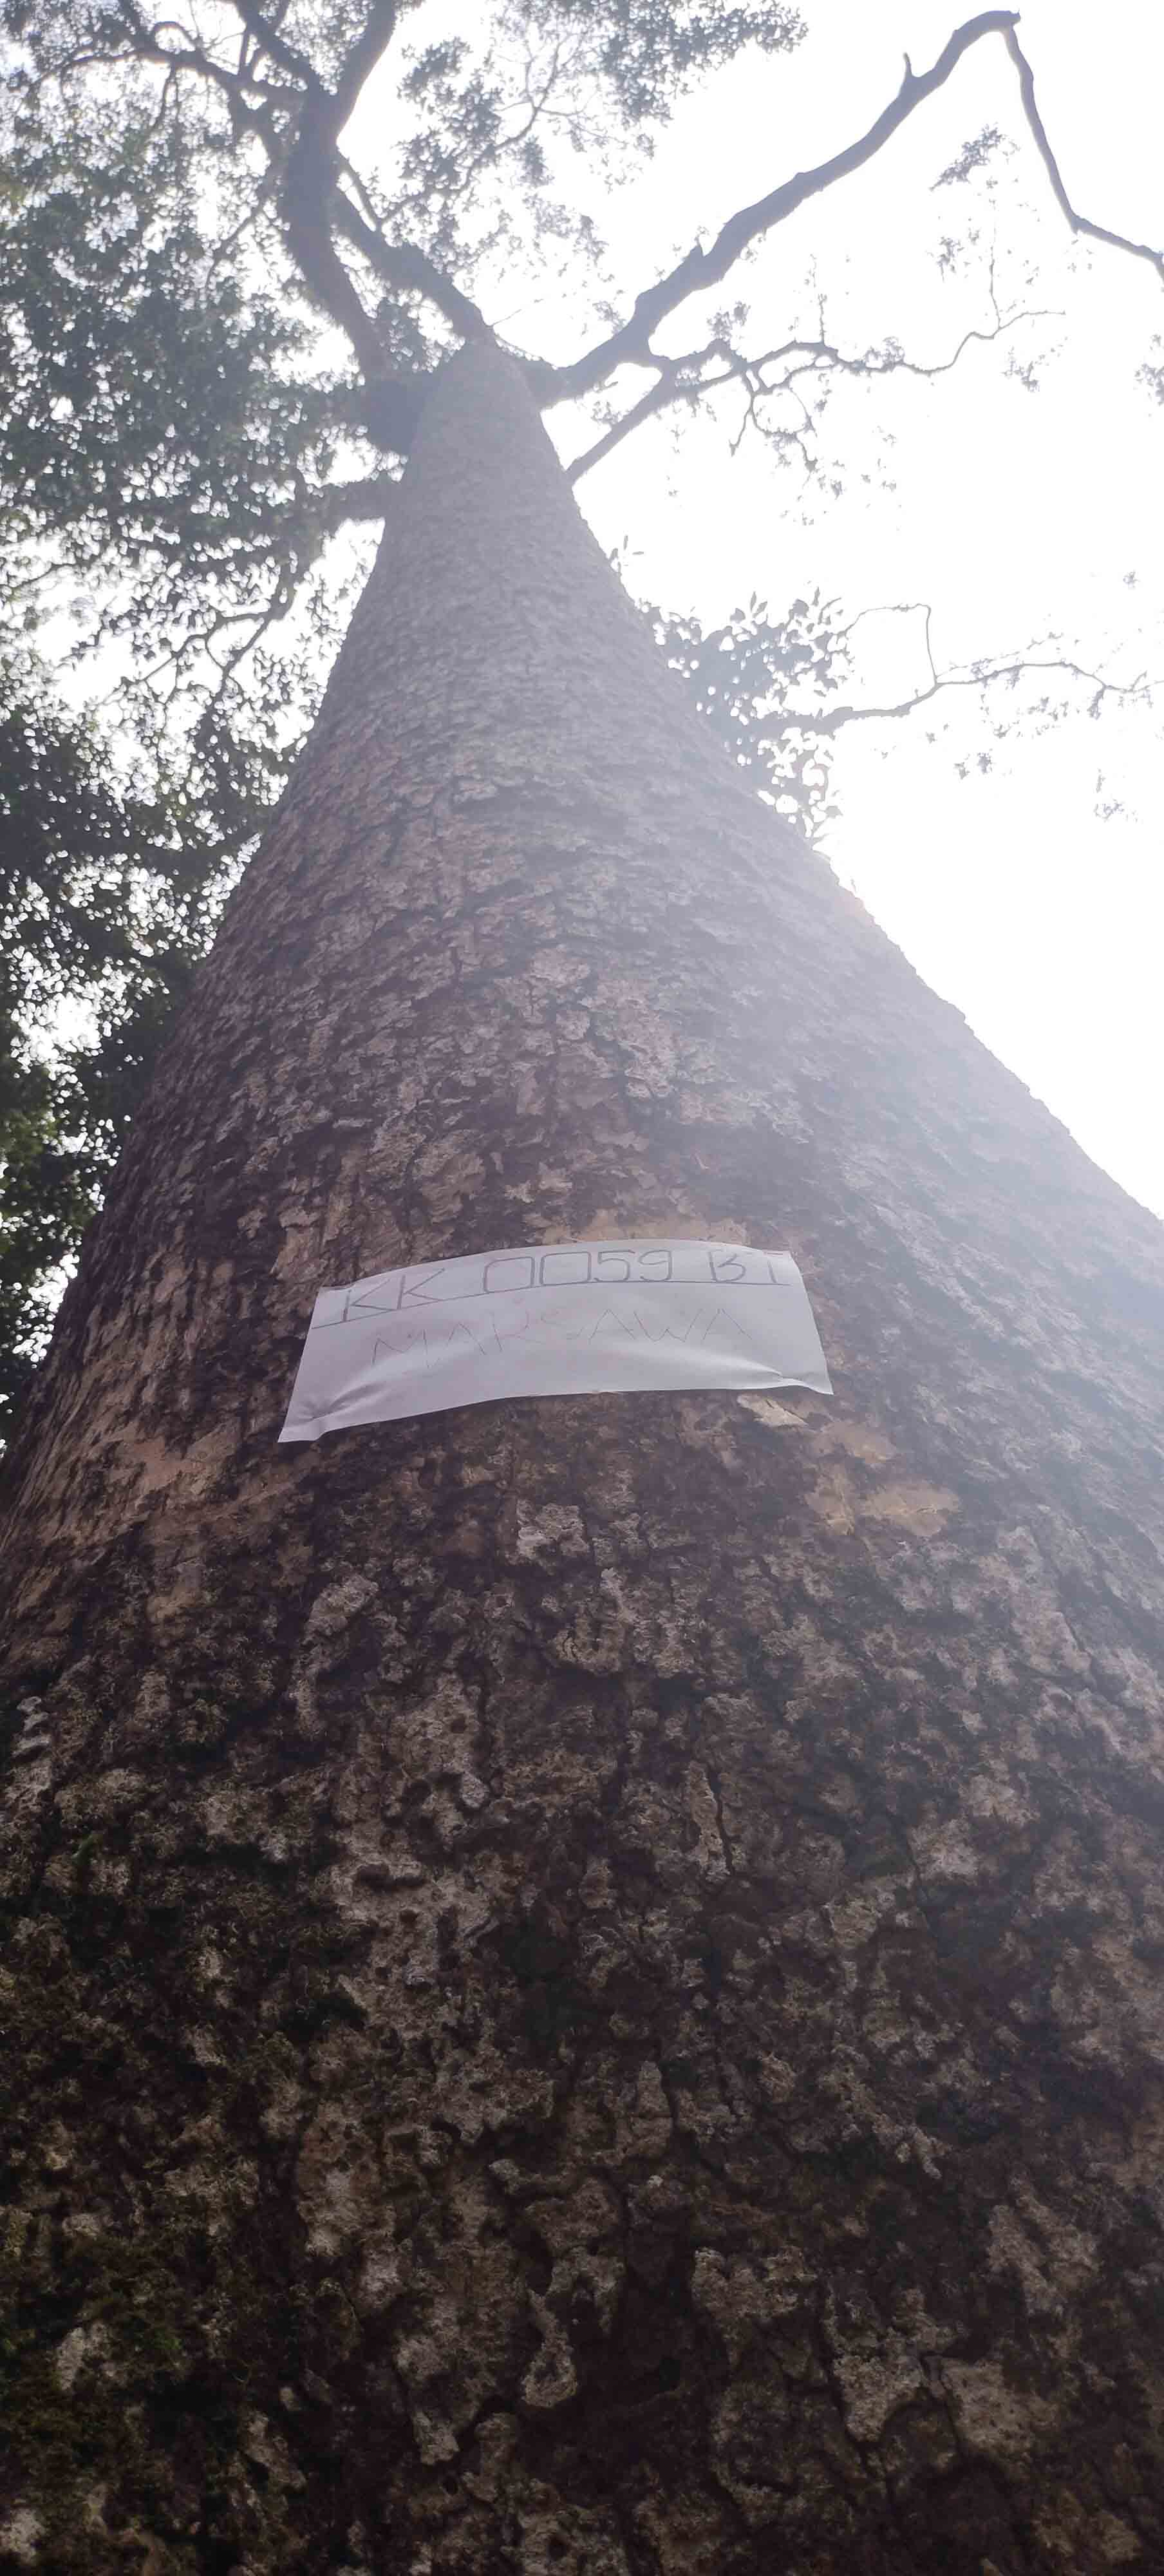 KK 0059 B1
MAKSAWA